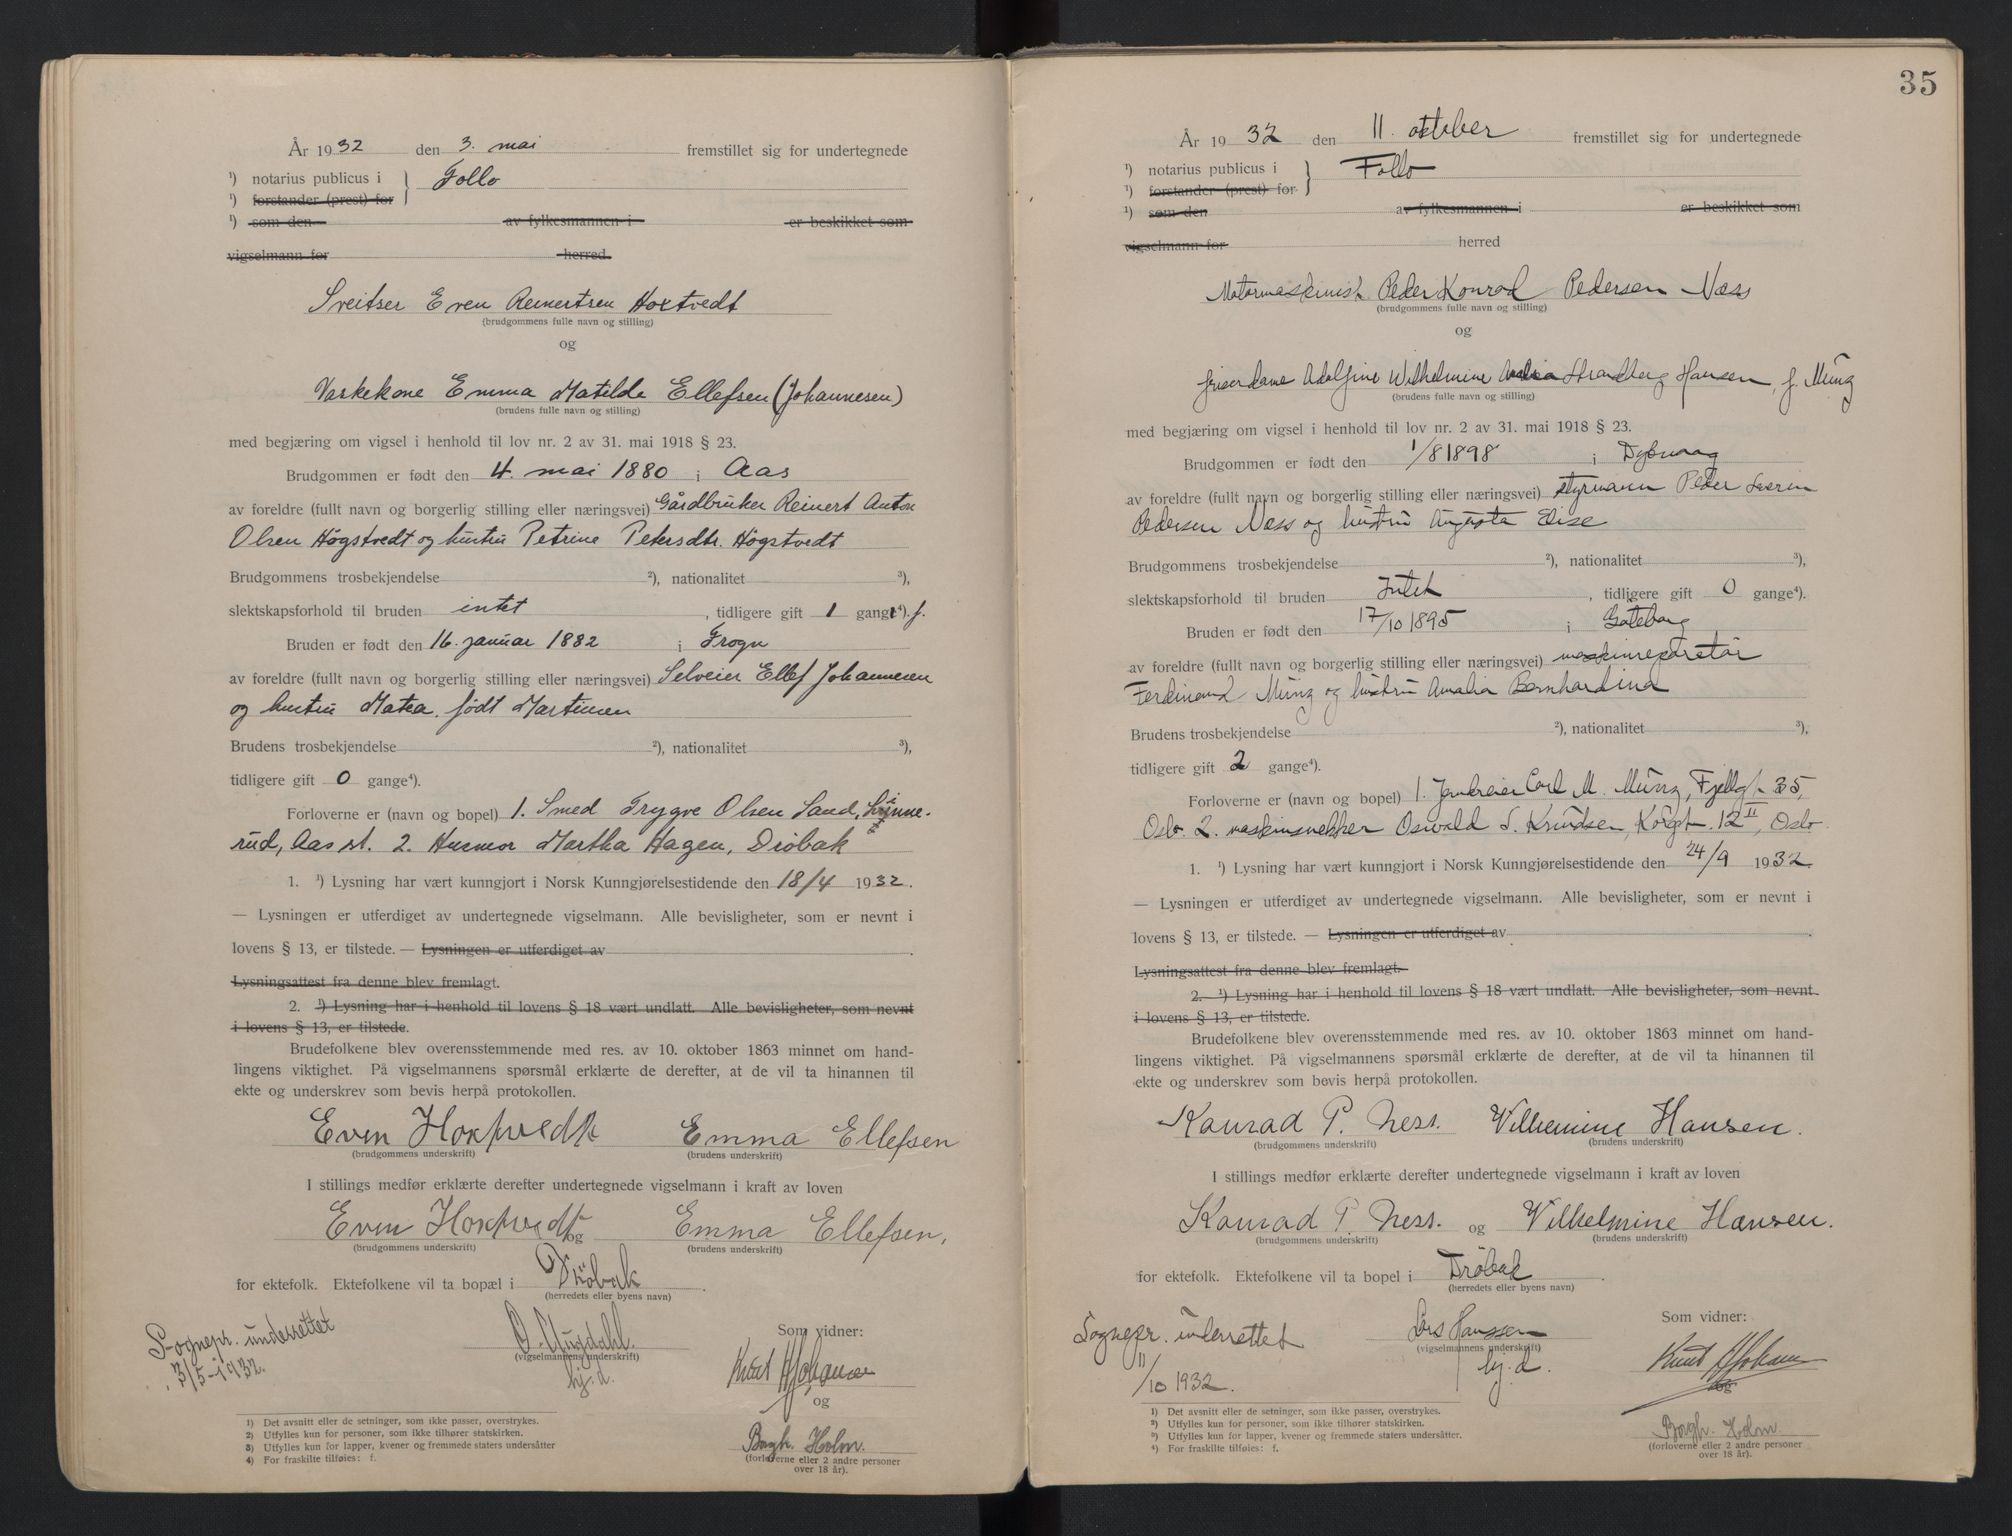 År 1932 den 3. mai fremstillet sig for undertegnede
¹) notarius publicus i } Follo
¹) forstander (prest) for
¹) som den av fylkesmannen i er beskikket som
vigselmann for herred.
Sveitser Even Reinertsen Hoxtvedt
(brudgommens fulle navn og stilling)
og
Vaskekone Emma Matilde Ellefsen (Johannesen)
(brudens fulle navn og stilling)
med begjæring om vigsel i henhold til lov nr. 2 av 31. mai 1918 § 23.
Brudgommen er født den 4. mai 1880 i Aas
av foreldre (fullt navn og borgerlig stilling eller næringsvei) Gårdbruker Reinert Anton
Olsen Högstvedt og hustru Petrine Petersdtr. Högstvedt
Brudgommens trosbekjendelse ²), nationalitet ³),
slektskapsforhold til bruden intet , tidligere gift 1 gange⁴). f.
Bruden er født den 16. januar 1882 i Frogn
av foreldre (fullt navn og borgerlig stilling eller næringsvei) Selveier Ellef Johannesen
og hustru Matea, født Martinsen
Brudens trosbekjendelse ²), nationalitet ³),
tidligere gift 0 gange⁴).
Forloverne er (navn og bopel) 1. Smed Trygve Olsen Sand,
rud, Aas st. 2. Husmor Martha Hagen, Dröbak
1. ¹) Lysning har vært kunngjort i Norsk Kunngjørelsestidende den 18/4 1932.
— Lysningen er utferdiget av undertegnede vigselmann. Alle bevisligheter, som er nevnt i
lovens § 13, er tilstede. — Lysningen er utferdiget av .
Lysningsattest fra denne blev fremlagt.
2. ¹) Lysning har i henhold til lovens § 18 vært undlatt. Alle bevisligheter, som nevnt
i lovens § 13, er tilstede.
Brudefolkene blev overensstemmende med res. av 10. oktober 1863 minnet om hand-
lingens viktighet. På vigselmannens spørsmål erklærte de derefter, at de vil ta hinannen til
ekte og underskrev som bevis herpå protokollen.
Even Hoxtvedt Emma Ellefsen
(brudgommens underskrift) (brudens underskrift)
I stillings medfør erklærte derefter undertegnede vigselmann i kraft av loven
Even Hoxtvedt og Emma Ellefsen,
(brudgommens underskrift) (brudens underskrift)
for ektefolk. Ektefolkene vil ta bopæl i Dröbak .
(herredets eller byens navn)
Sognepr. underrettet
3/5-1932.
(vigselmannens underskrift)
hj. d.
Som vidner:
Knut A Johansen
og
Borgh. Holm.
(forloverne eller 2 andre personer
over 18 år).
1) Det avsnitt eller de setninger, som ikke passer, overstrykes.
2) Utfylles kun for personer, som ikke tilhører statskirken.
3) Utfylles kun for lapper, kvener og fremmede staters undersåtter
4) For fraskilte tilføies: f.
35
År 1932 den 11. oktober fremstillet sig for undertegnede
¹) notarius publicus i } Follo
¹) forstander (prest) for
¹) som den av fylkesmannen i er beskikket som
vigselmann for herred
Motormaskinist Peder Konrad Pedersen Næss
(brudgommens fulle navn og stilling)
og
friserdame Adolfine Wilhelmine Strandberg Hansen, f. Münz
(brudens fulle navn og stilling)
med begjæring om vigsel i henhold til lov nr. 2 av 31. mai 1918 § 23.
Brudgommen er født den 1/8 1898 i Dybvaag
av foreldre (fullt navn og borgerlig stilling eller næringsvei) styrmann Peder Severin
Pedersen Næss og hustru Augusta Elise
Brudgommens trosbekjendelse ²), nationalitet ³),
slektskapsforhold til bruden Intet , tidligere gift 0 gange⁴).
Bruden er født den 17/10 1895 i Göteborg
av foreldre (fullt navn og borgerlig stilling eller næringsvei) maskinreparetör
Ferdinand Münz og hustru Amalia Bernhardina
Brudens trosbekjendelse ²), nationalitet ³),
tidligere gift 2 gange⁴).
Forloverne er (navn og bopel) 1. Carl M. Münz, Fjellgt. 35,
Oslo. 2. maskinsnekker Oswald S. Knudsen, Korsgt. 12 II, Oslo.
1. ¹) Lysning har vært kunngjort i Norsk Kunngjørelsestidende den 24/9 1932.
— Lysningen er utferdiget av undertegnede vigselmann. Alle bevisligheter, som er nevnt i
lovens § 13, er tilstede. — Lysningen er utferdiget av .
Lysningsattest fra denne blev fremlagt.
2. ¹) Lysning har i henhold til lovens § 18 vært undlatt. Alle bevisligheter, som nevnt
i lovens § 13, er tilstede.
Brudefolkene blev overensstemmende med res. av 10. oktober 1863 minnet om hand-
lingens viktighet. På vigselmannens spørsmål erklærte de derefter, at de vil ta hinannen til
ekte og underskrev som bevis herpå protokollen.
Konrad P. Ness. Wilhelmine Hansen.
(brudgommens underskrift) (brudens underskrift)
I stillings medfør erklærte derefter undertegnede vigselmann i kraft av loven
Konrad P. Ness. og Wilhelmine Hansen.
(brudgommens underskrift) (brudens underskrift)
for ektefolk. Ektefolkene vil ta bopel i Dröbak .
(herredets eller byens navn)
Sognepr. underrettet
11/10 1932.
Lars Hanssen
(vigselmannens underskrift)
hj. d.
Som vidner:
Knut A Johansen
og
Borgh. Holm.
(forloverne eller 2 andre personer
over 18 år).
¹) Det avsnitt eller de setninger, som ikke passer, overstrykes.
²) Utfylles kun for personer, som ikke tilhører statskirken.
³) Utfylles kun for lapper, kvener og fremmede staters undersåtter.
⁴) For fraskilte tilføies: f.